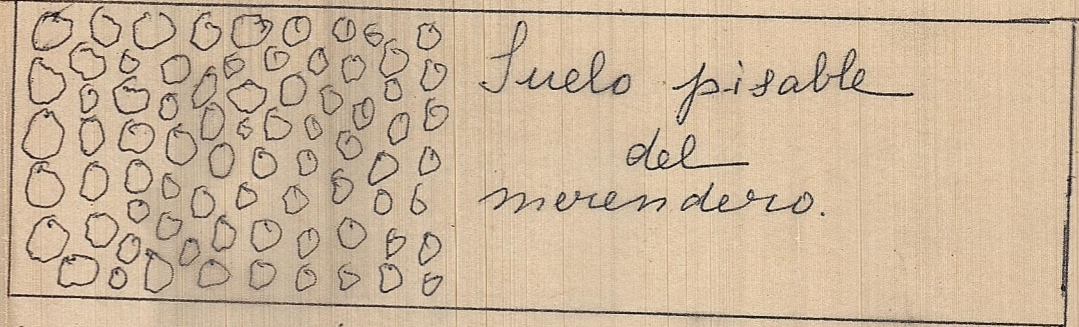 Suelo pisable
del
merendero.